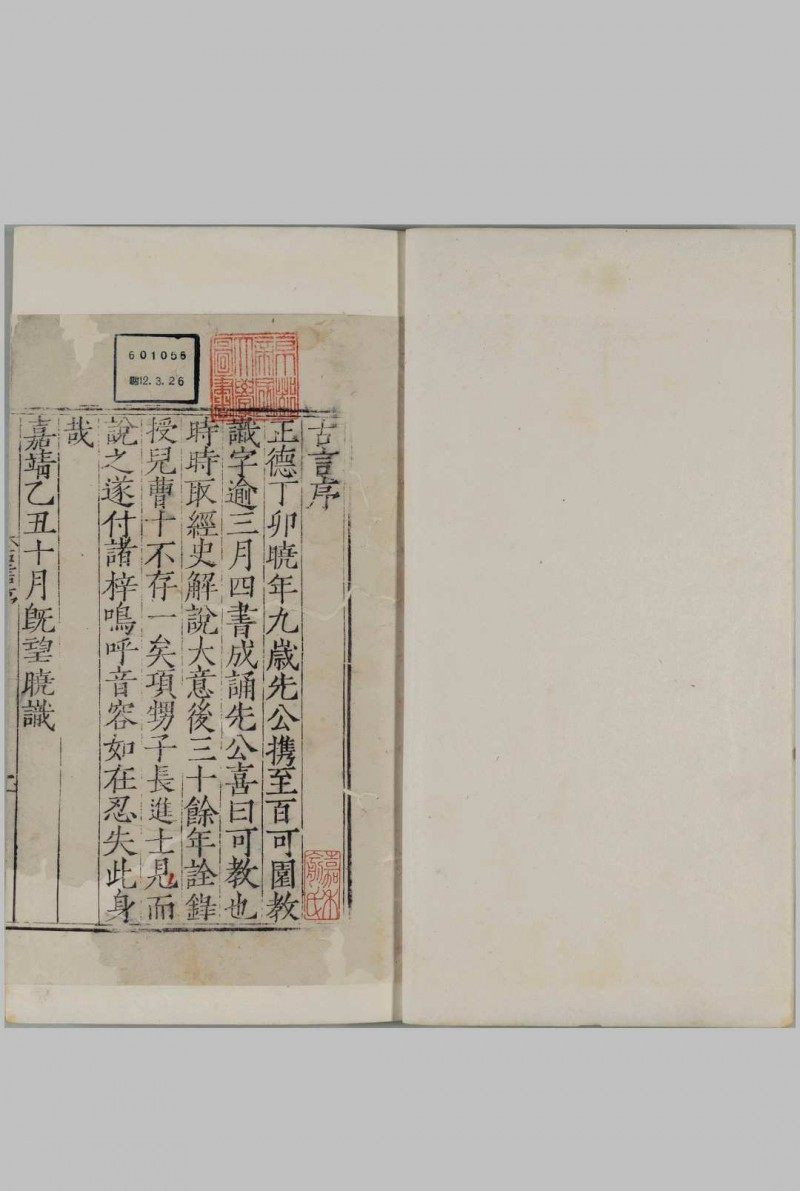 古言序
正德丁卯曉年九歲先公携至百可園教
識字逾三月四書成誦先公喜曰可教也
時時取經史解說大意後三十餘年詮錄
授兒曹十不存一矣項甥子長進士見而
說之遂付諸梓嗚呼音容如在忍失此身
哉
嘉靖乙丑十月旣望曉識
601056
昭12.3.26
京都帝國大學圖書